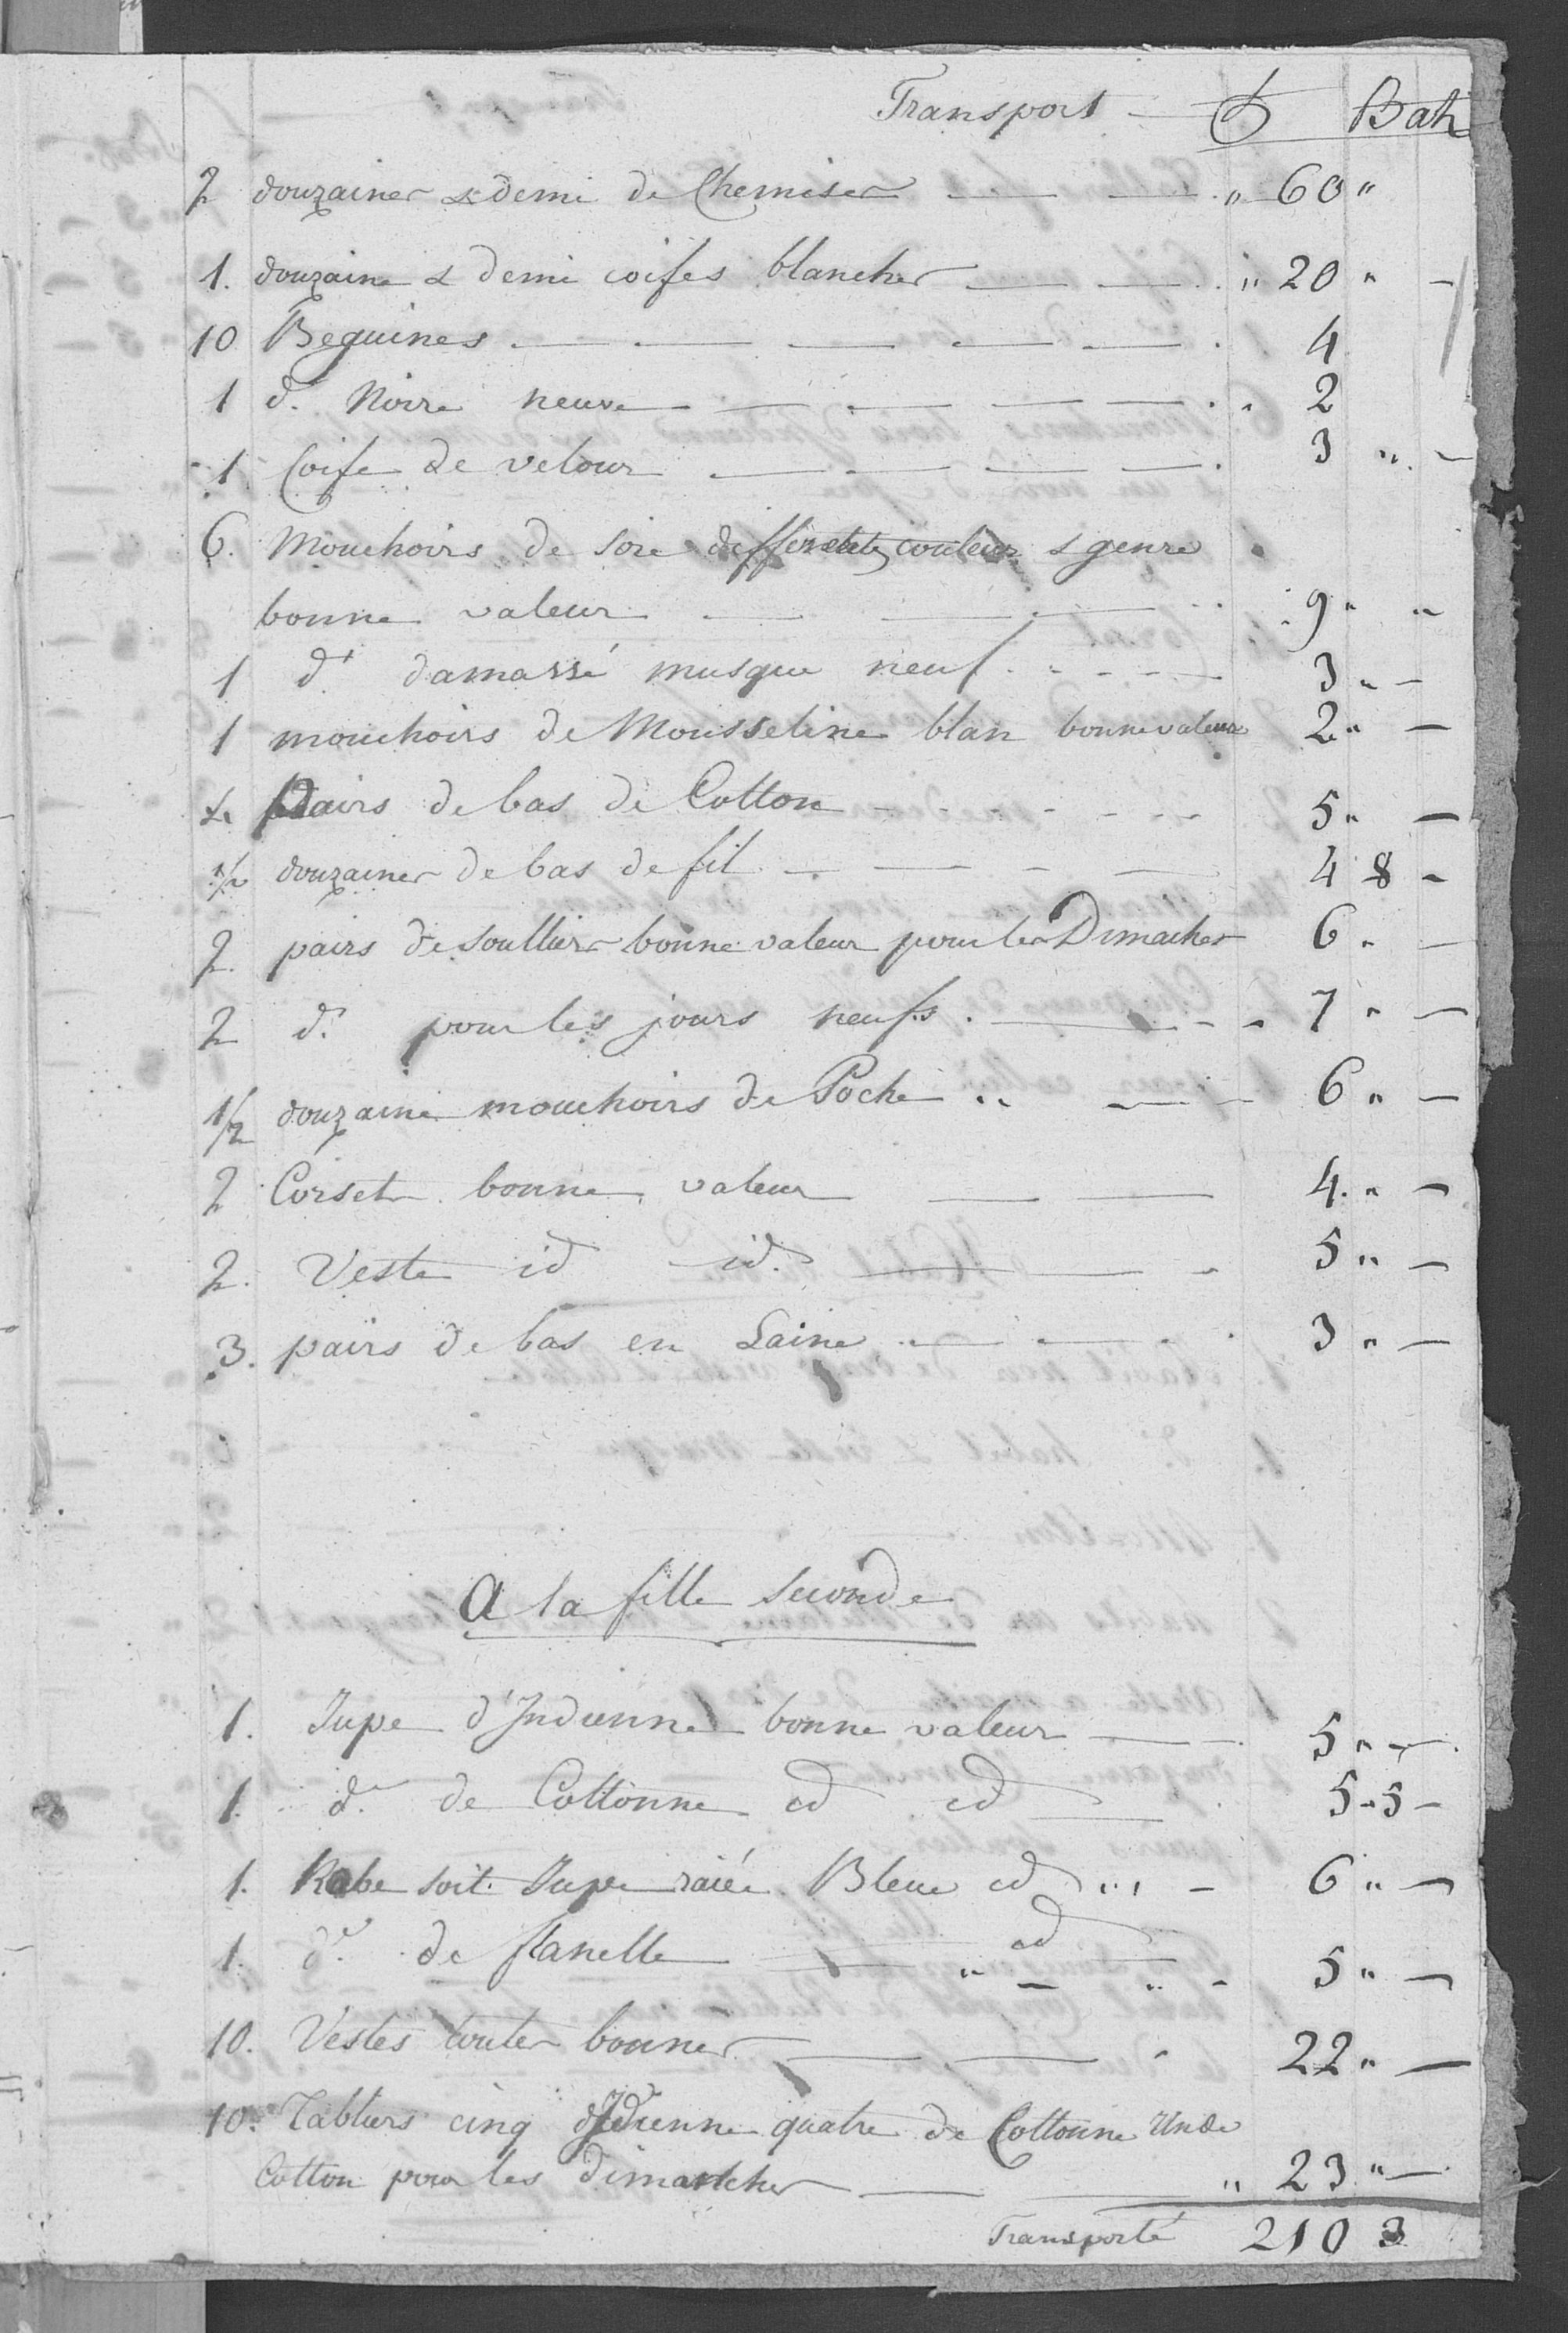 Transport ₶ Batz
2 douzaines & demi de Chemises „ 60 „
1. douzaine & demi coifes blanches „ 20 „ -
10 Beguines 4
1 d.º Noire neuve 2
1 Coife de velour 3 „ -
6. Mouchoirs de soie differentes couleurs & genre
bonne valeur 9 „ „
1 dº damassé musque neuf 3 „ -
1 mouchoirs de Mousseline blan bonne valeur 2 „ -
4 pairs de bas de Cotton 5 „ -
1/2 douzaines de bas de fil 4 8 -
2. pairs de soulliers bonne valeur pour les Dimaches 6 „ -
2 d.º pour les jours neufs 7 „ -
1/2 douzaine mouchoirs de Poche 6 „ -
2 Corsets bonne valeur 4 „ -
2. Veste id id. 5 „ -
3. pairs de bas en Laine 3 „ -
A la fille seconde
1. Jupe d'Indienne bonne valeur 5 „ -
1. d.º de Cottonne id id 5 „ 5 -
1. Robe soit Jupe raiée Bleue id 6 „ -
1. d.º de flanelle id 5 „ -
10. Vestes toutes bonnes 22 „ -
10. Tabliers cinq d'Idienne quatre de Cottonne Un de
Cotton pour les dimanches „ 23 „ -
Transporté 210 3